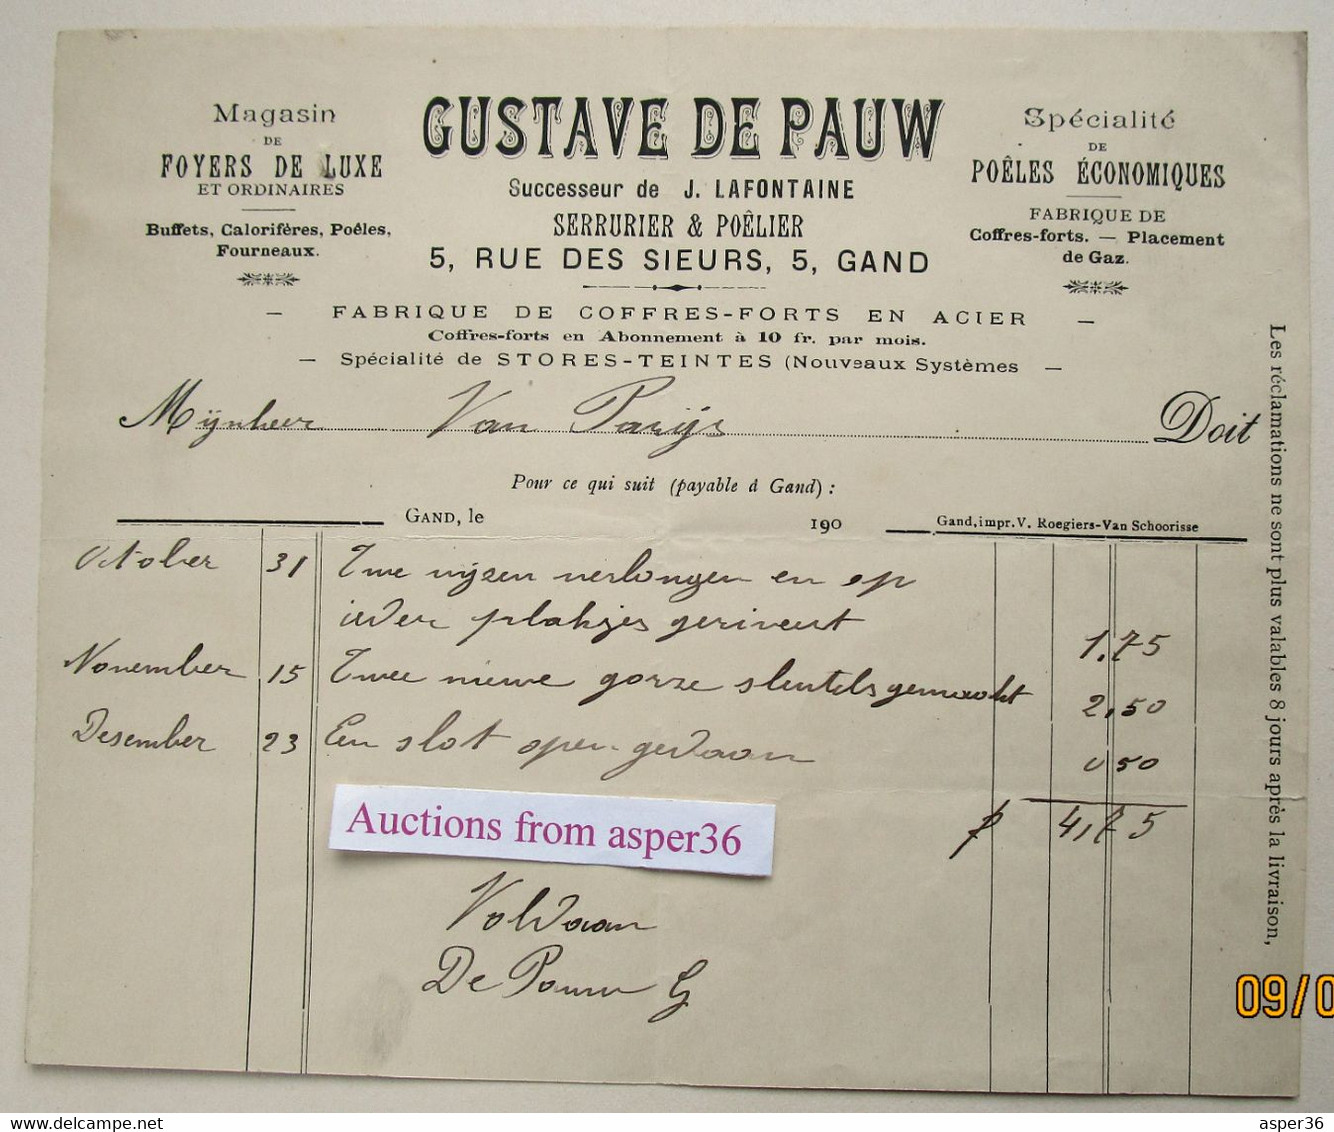 Magasin
DE
FOYERS DE LUXE
ET ORDINAIRES
Buffets, Calorifères, Poêles,
Fourneaux.
GUSTAVE DE PAUW
Successeur de J. LAFONTAINE
SERRURIER & POÊLIER
5, RUE DES SIEURS, 5, GAND
Spécialité
DE
POÊLES ÉCONOMIQUES
FABRIQUE DE
Coffres-forts. — Placement
de Gaz.
— FABRIQUE DE COFFRES-FORTS EN ACIER —
Coffres-forts en Abonnement à 10 fr. par mois.
— Spécialité de STORES-TEINTES (Nouveaux Systèmes —
Mijnheer Van Parijs Doit
Pour ce qui suit (payable à Gand) :
GAND, le 190
Gand, impr. V. Roegiers-Van Schoorisse
October 31 Twe vijzen verlongen en op
ieder plakjes geriveert 1.75
November 15 Twee niewe gorze sleutels gemaakt 2,50
Desember 23 Een slot open gedaan 0 50
4,75
Voldaan
De Pauw G
Les réclamations ne sont plus valables 8 jours après la livraison,
Auctions from asper36
09/0
asper36